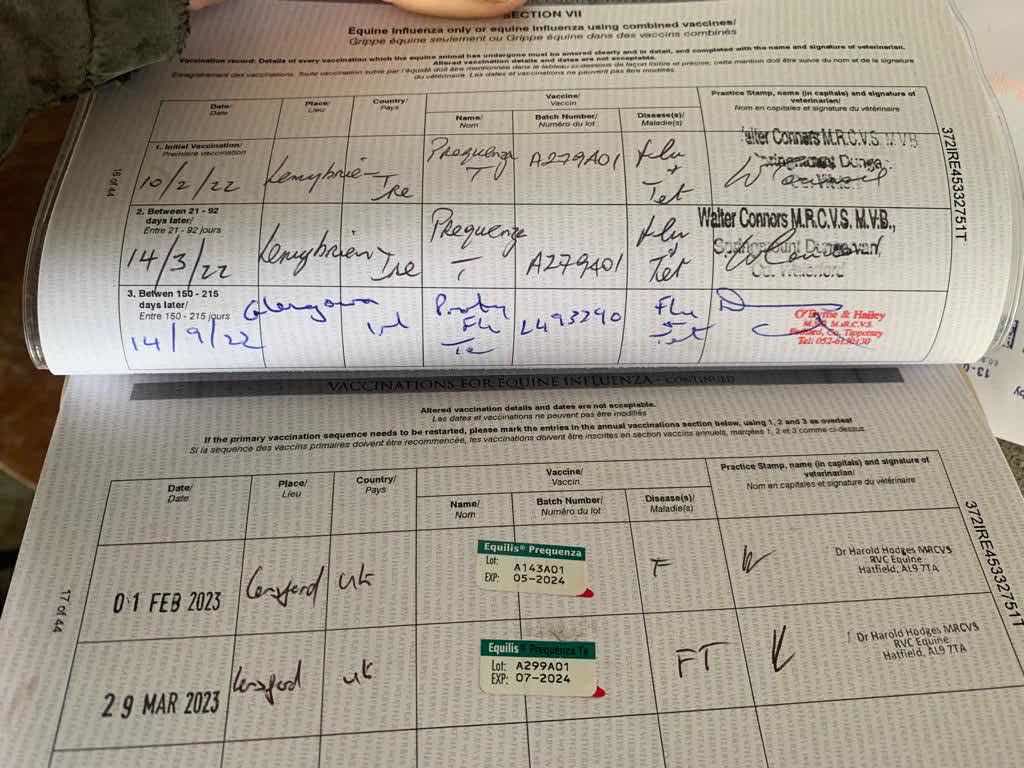 SECTION VII
Equine Influenza only or equine influenza using combined vaccines/
Grippe équine seulement ou Grippe équine dans des vaccins combinés
Vaccination record: Details of every vaccination which the equine animal has undergone must be entered clearly and in detail, and completed with the name and signature of veterinarian.
Altered vaccination details and dates are not acceptable.
Enregistrement des vaccinations. Toute vaccination subie par l'équidé doit être mentionnée dans le tableau ci-dessous de façon lisible et précise; cette mention doit être suivie du nom et de la signature
du vétérinaire. Les dates et vaccinations ne peuvent pas être modifiés.
Date/
Date
Place/
Lieu
Country/
Pays
Vaccine/
Vaccin
Name/
Nom
Batch Number/
Numéro du lot
Disease(s)
Maladie(s)
Practice Stamp, name (in capitals) and signature of
veterinarian/
Nom en capitales et signature du vétérinaire
1. Initial Vaccination/
Première vaccination
10/2/22
Lemybrien
Ire
Prequenza
T
A279A01
Flu
+
Tet
Walter Connors M.R.C.V.S. M.V.B.
2. Between 21 - 92
days later/
Entre 21 - 92 jours
14/3/22
Lemybrien
Ire
Prequenza
T
A279A01
Flu
+
Tet
Walter Connors M.R.C.V.S. M.V.B.,
3. Betwen 150 - 215
days later/
Entre 150 - 215 jours
14/9/22
Irl
Flu
Te
L493290
Flu
Tet
O'Byrne & Halley
M.R.C.V.S.
Co. Tipperary
16 of 44
372IRE45332751T
VACCINATIONS FOR EQUINE INFLUENZA - CONTINUED
Altered vaccination details and dates are not acceptable.
Les dates et vaccinations ne peuvent pas être modifiés
If the primary vaccination sequence needs to be restarted, please mark the entries in the annual vaccinations section below, using 1, 2 and 3 as overleaf
Si la séquence des vaccins primaires doivent être recommencée, les vaccinations doivent être inscrites en section vaccins annuels, marqées 1, 2 et 3 comme ci-dessus
Date/
Date
Place/
Lieu
Country/
Pays
Vaccine/
Vaccin
Name/
Nom
Batch Number/
Numéro du lot
Disease(s)/
Maladie(s)
Practice Stamp, name (in capitals) and signature of
veterinarian/
Nom en capitales et signature du vétérinaire
01 FEB 2023
UK
Equilis® Prequenza
Lot: A143A01
EXP: 05-2024
F
Dr Harold Hodges MRCVS
RVC Equine
Hatfield, AL9 7TA
29 MAR 2023
UK
Equilis® Prequenza Te
Lot: A299A01
EXP: 07-2024
FT
Dr Harold Hodges MRCVS
RVC Equine
Hatfield, AL9 7TA
17 of 44
372IRE45332751T